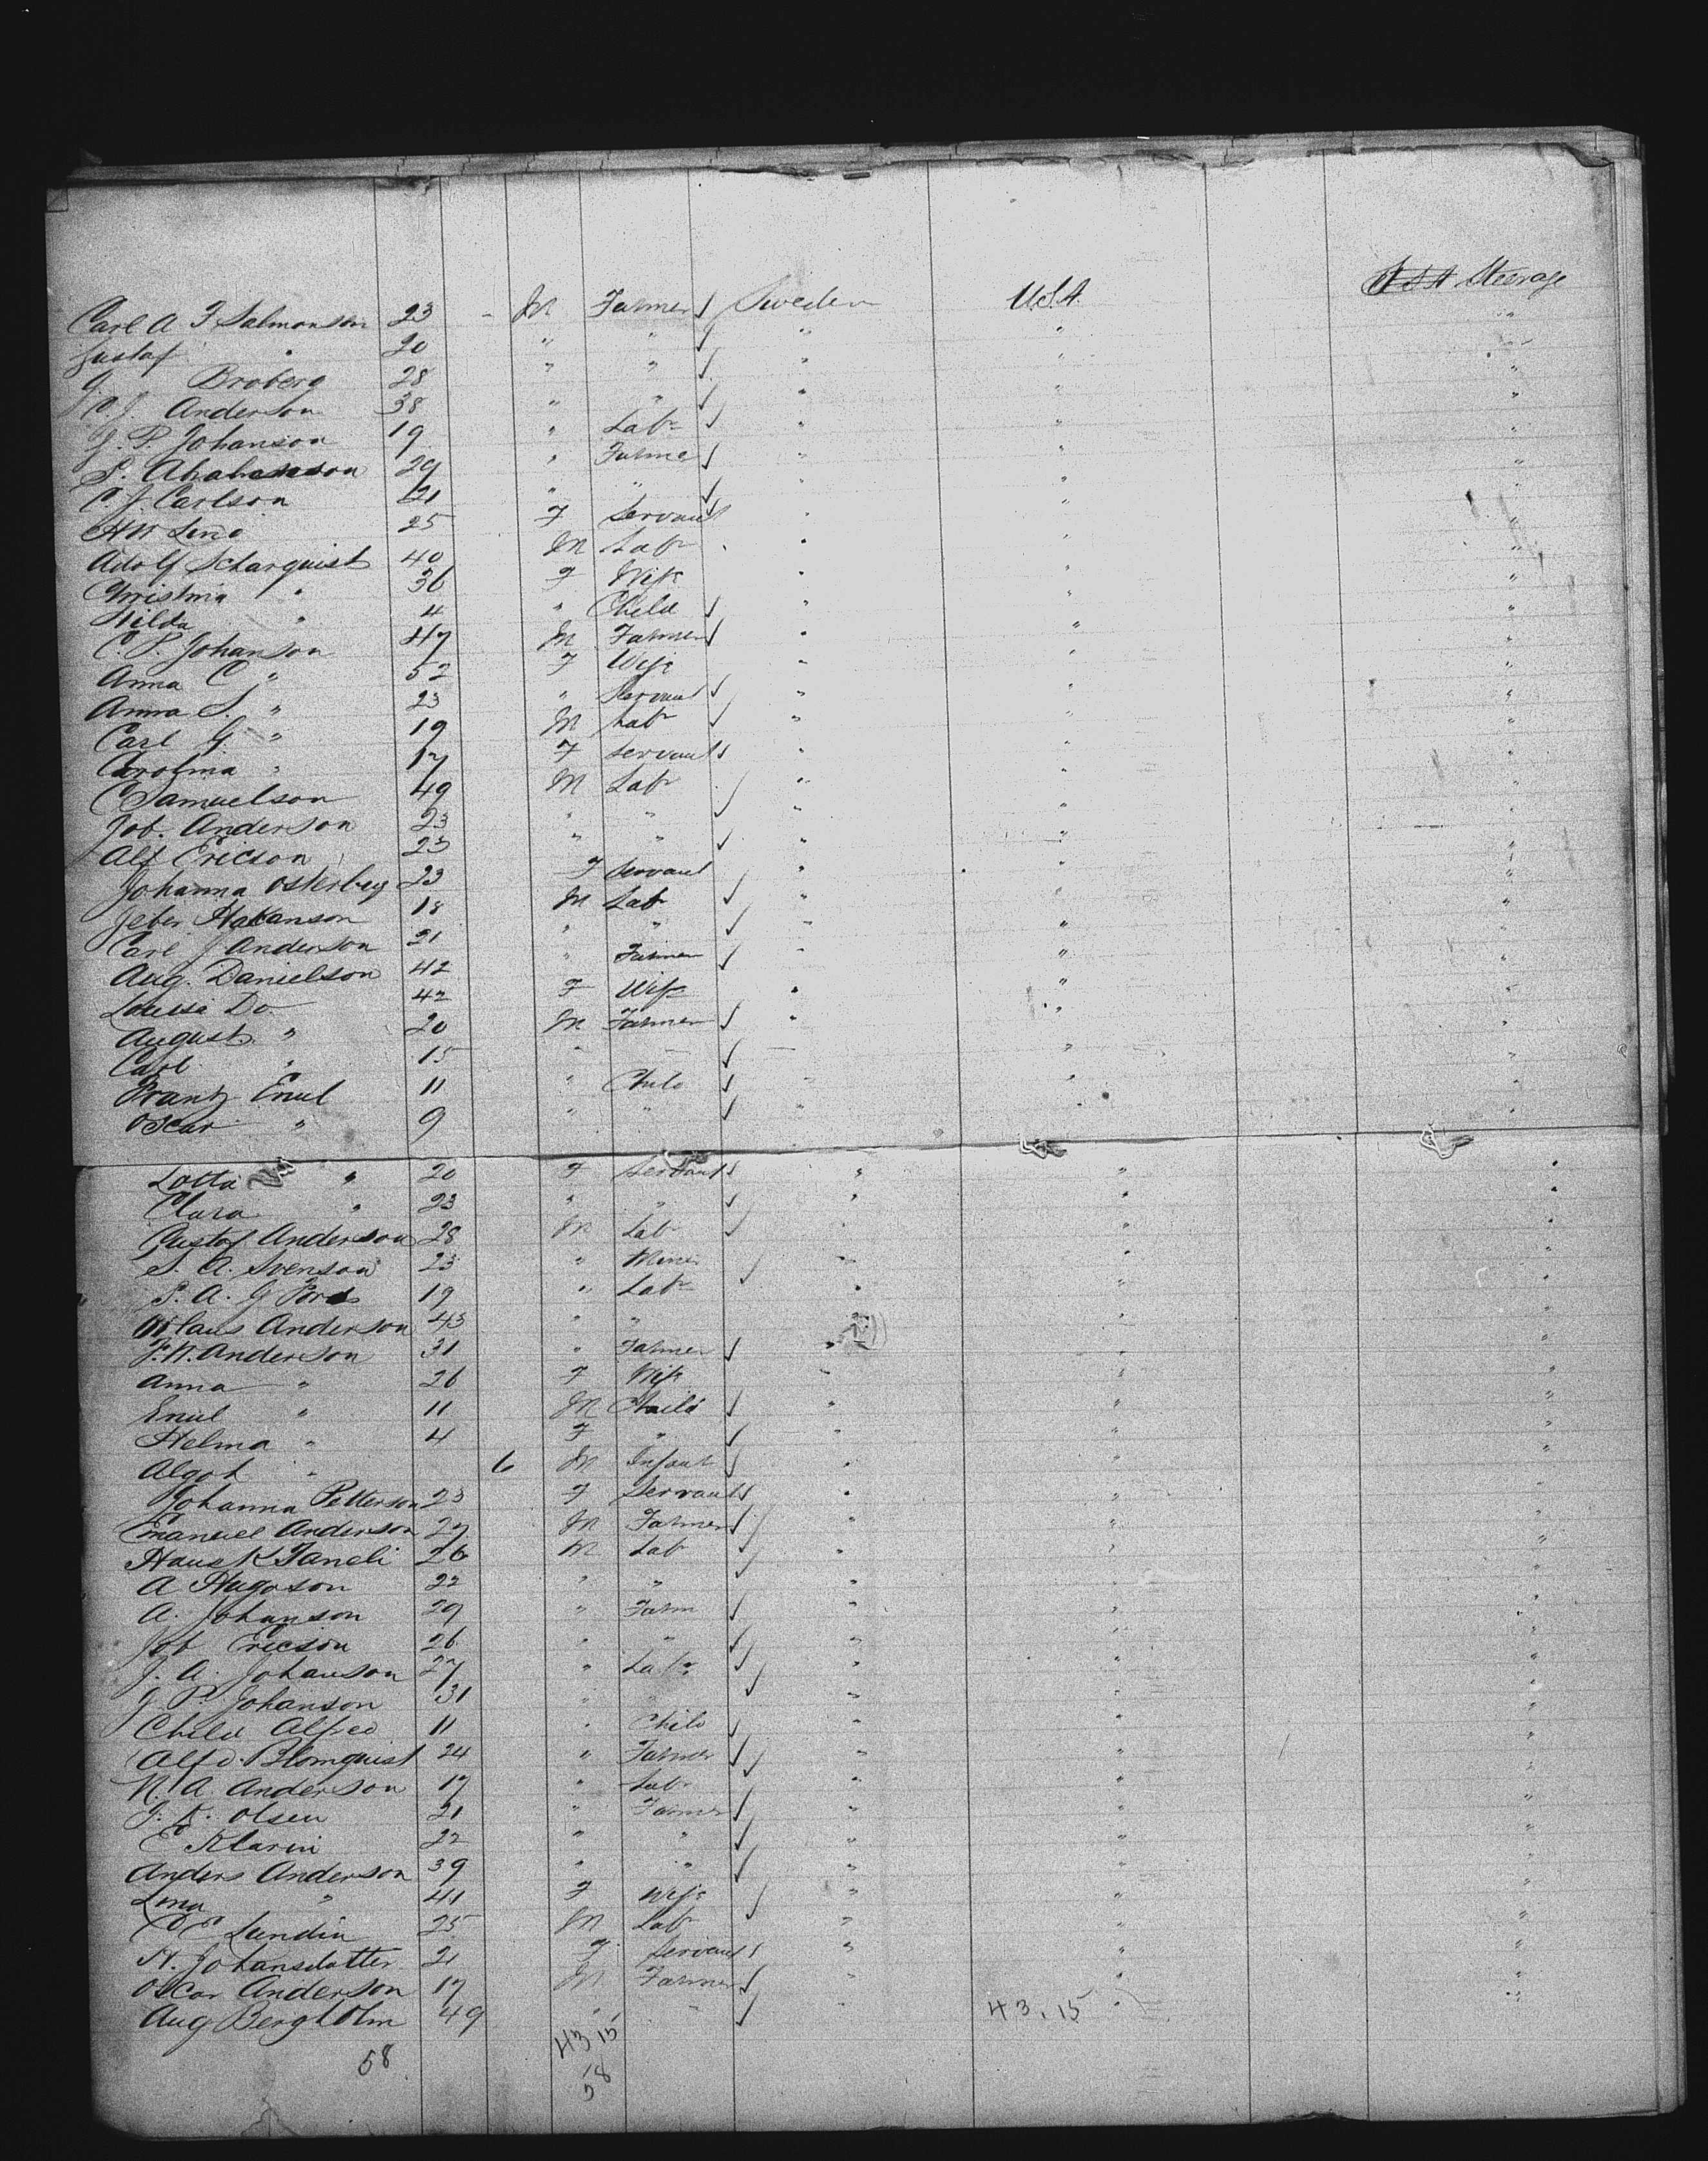 Carl A F Salmonson 23 - M Farmer ✓ Sweden U.S.A. Steerage
Gustaf " 20 " " ✓ " " "
G Broberg 28 " " ✓ " " "
C. J. Anderson 38 " " ✓ " " "
G. P. Johanson 19 " Labr ✓ " " "
S. Abahamson 29 " Farmer ✓ " " "
C. J. Carlson 21 " " ✓ " " "
Lind 25 F Servant " " "
Adolf Scharquist 40 M Labr " " "
Christina " 36 F Wife " " "
Hilda " 4 " Child ✓ " " "
C. P. Johanson 47 M Farmer ✓ " " "
Anna C " 52 F Wife " " "
Anna S. " 23 " Servant ✓ " " "
Carl G. " 19 M Labr ✓ " " "
Carolina " 17 F Servant ✓ " " "
C Samuelson 49 M Labr ✓ " " "
Joh. Anderson 23 " " " " "
Alf Ericson 23 " " ✓ " " "
Johanna Osterberg 23 F Servant " " "
Hakanson 18 M Labr ✓ " " "
Carl J Anderson 21 " " ✓ " " "
Aug. Danielson 42 " Farmer ✓ " " "
Louisa Do. 42 F Wife " " "
August " 20 M Farmer ✓ " " "
Carl " 15 " " ✓ " " "
Frantz Emil 11 " Child ✓ " " "
Oscar " 9 " " ✓ " " "
Lotta " 20 F Servant ✓ " " "
Clara " 23 " " ✓ " " "
Gustaf Anderson 28 M Labr ✓ " " "
S. A. Svenson 23 " Miner ✓ " " "
S. A. G Fors 19 " Labr " " "
Claus Anderson 43 " " " " "
F. N. Anderson 31 " Farmer ✓ " " "
Anna " 26 F Wife " " "
Emil " 11 M Child ✓ " " "
Helma " 4 F " ✓ " " "
Algot " 6 M Infant ✓ " " "
Johanna Petterson 23 F Servant ✓ " " "
Emanuel Anderson 27 M Farmer ✓ " " "
Hans K Taneli 26 M Lab ✓ " " "
A Hugoson 22 " " ✓ " " "
A. Johanson 29 " Farm ✓ " " "
Joh Ericson 26 " " ✓ " " "
J. A. Johanson 27 " Labr ✓ " " "
J P. Johanson 31 " " ✓ " " "
Child Alfred 11 " Child ✓ " " "
Alfd. Blomquist 24 " Farmer ✓ " " "
N. A. Anderson 17 " Labr ✓ " " "
J. K. Olsen 21 " Farmer ✓ " " "
C Klarin 22 " " ✓ " " "
Anders Anderson 39 " " ✓ " " "
Lina " 41 F Wife ✓ " " "
C E Lundin 25 M Labr ✓ " " "
H. Johansdotter 21 F Servant ✓ " " "
Oscar Anderson 17 M Farmer ✓ " " "
Aug Bergholm 49 " " ✓ " " "
43.15
58 43 15
58